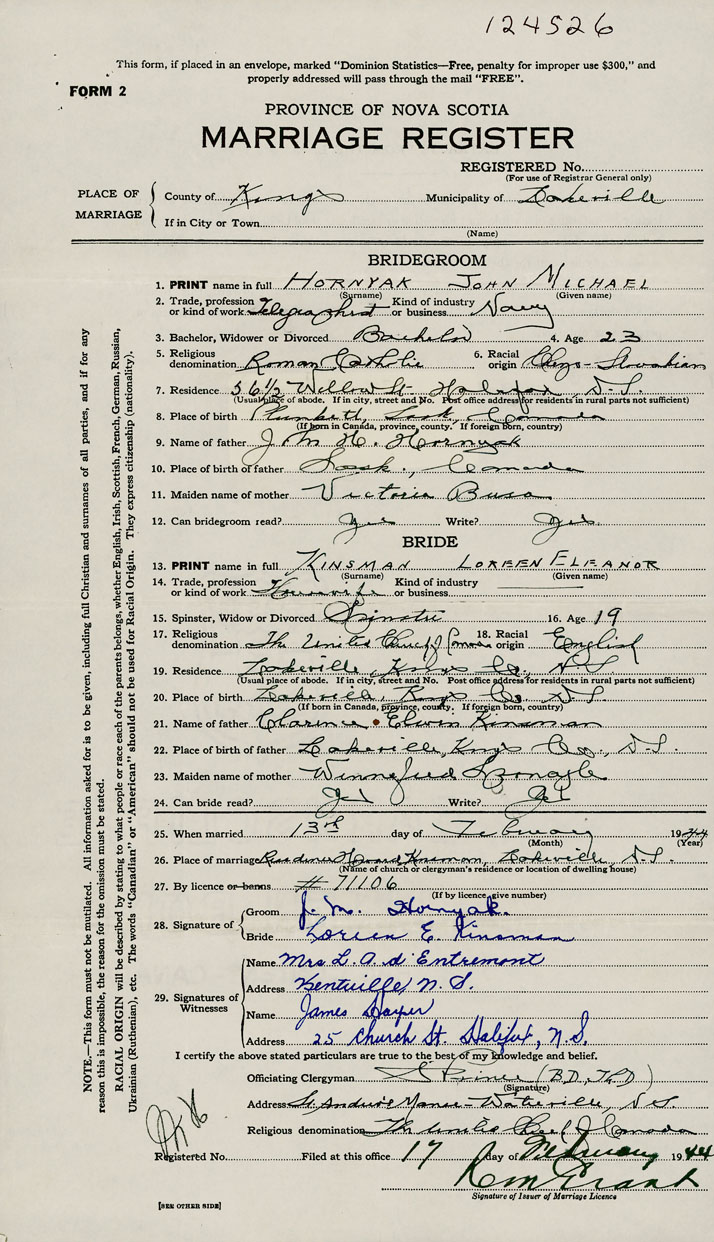 124526
This form, if placed in an envelope, marked "Dominion Statistics—Free, penalty for improper use $300," and
properly addressed will pass through the mail "FREE".
FORM 2
PROVINCE OF NOVA SCOTIA
MARRIAGE REGISTER
REGISTERED No.
(For use of Registrar General only)
PLACE OF MARRIAGE
County of Kings Municipality of Lakeville
If in City or Town
(Name)
BRIDEGROOM
1. PRINT name in full HORNYAK JOHN MICHAEL
(Surname) (Given name)
2. Trade, profession or kind of work Telegraphist Kind of industry or business Navy
3. Bachelor, Widower or Divorced Bachelor 4. Age 23
5. Religious denomination Roman Catholic 6. Racial origin Chzo-Slovakian
7. Residence 56½ Willow St. Halifax N.S.
(Usual place of abode. If in city, street and No. Post office address for residents in rural parts not sufficient)
8. Place of birth Plunkett, Sask, Canada
(If born in Canada, province, county. If foreign born, country)
9. Name of father J. M. H. Hornyak
10. Place of birth of father Sask., Canada
11. Maiden name of mother Victoria Busa
12. Can bridegroom read? yes Write? yes
BRIDE
13. PRINT name in full KINSMAN LOREEN ELEANOR
(Surname) (Given name)
14. Trade, profession or kind of work Housewife Kind of industry or business
15. Spinster, Widow or Divorced Spinster 16. Age 19
17. Religious denomination The United Church of Canada 18. Racial origin English
19. Residence Lakeville, Kings Co., N.S.
(Usual place of abode. If in city, street and No. Post office address for residents in rural parts not sufficient)
20. Place of birth Lakeville, Kings Co. N.S.
(If born in Canada, province, county. If foreign born, country)
21. Name of father Clarence Elwin Kinsman
22. Place of birth of father Lakeville, Kings Co., N.S.
23. Maiden name of mother Winnefred
24. Can bride read? Yes Write? Yes
25. When married 13rd day of February 1944
(Month) (Year)
26. Place of marriage Residence Howard Kinsman, Lakeville, N.S.
(Name of church or clergyman's residence or location of dwelling house)
27. By licence or banns # 71106
(If by licence, give number)
28. Signature of
Groom J. M. Hornyak.
Bride Loreen E. Kinsman
29. Signatures of Witnesses
Name Mrs L. A. d'Entremont
Address Kentville, N.S.
Name James Harper
Address 25 Church St. Halifax, N.S.
I certify the above stated particulars are true to the best of my knowledge and belief.
Officiating Clergyman (B.D., Th.D)
(Signature)
Address St. Andrew's Manse - Waterville, N.S.
Religious denomination The United Church of Canada
Registered No. Filed at this office 17 day of February 1944
Signature of Issuer of Marriage Licence
[SEE OTHER SIDE]
NOTE.—This form must not be mutilated. All information asked for is to be given, including full Christian and surnames of all parties, and if for any
reason this is impossible, the reason for the omission must be stated.
RACIAL ORIGIN will be described by stating to what people or race each of the parents belongs, whether English, Irish, Scottish, French, German, Russian,
Ukrainian (Ruthenian), etc. The words "Canadian" or "American" should not be used for Racial Origin. They express citizenship (nationality).